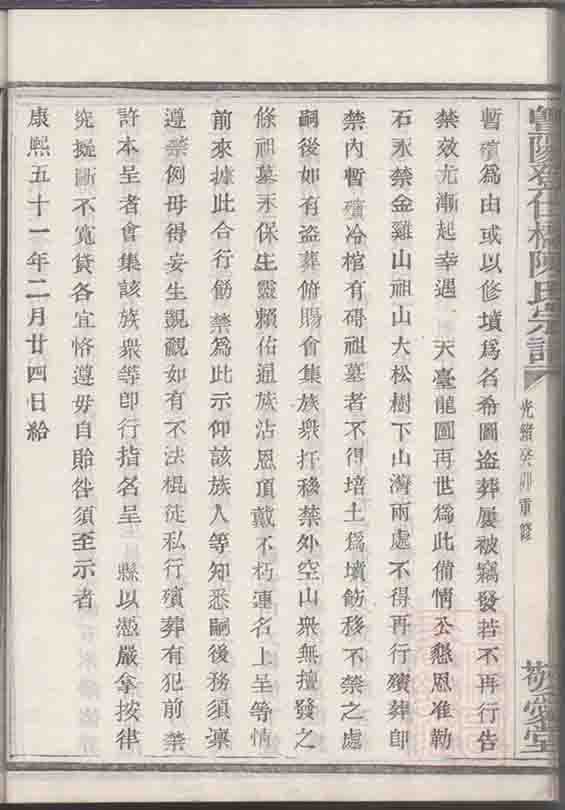 暨陽鄧?橋陳氏宗譜
光緒癸卯重修
敬愛堂
暫殯為由或以修墳為名希圖盜葬屢被竊發若不再行告
禁效尤漸起幸遇 天臺龍圖再世為此備情公懇恩准勒
石永禁金雞山祖山大松樹下山灣兩處不得再行殯葬即
禁內暫殯冷棺有碍祖墓者不得培土為墳飭移不禁之處
嗣後如有盜葬俯賜會集族衆扞移禁外空山衆無擅發之
條祖墓永保生靈賴佑通族沾恩頂戴不朽連名上呈等情
前來據此合行飭禁為此示仰該族人等知悉嗣後務須凜
遵禁例毋得妄生覬覦如有不法棍徒私行殯葬有犯前禁
許本呈者會集該族衆等即行指名呈 縣以憑嚴拿按律
究擬斷不寬貸各宜恪遵毋自貽咎須至示者
康熙五十一年二月廿四日給